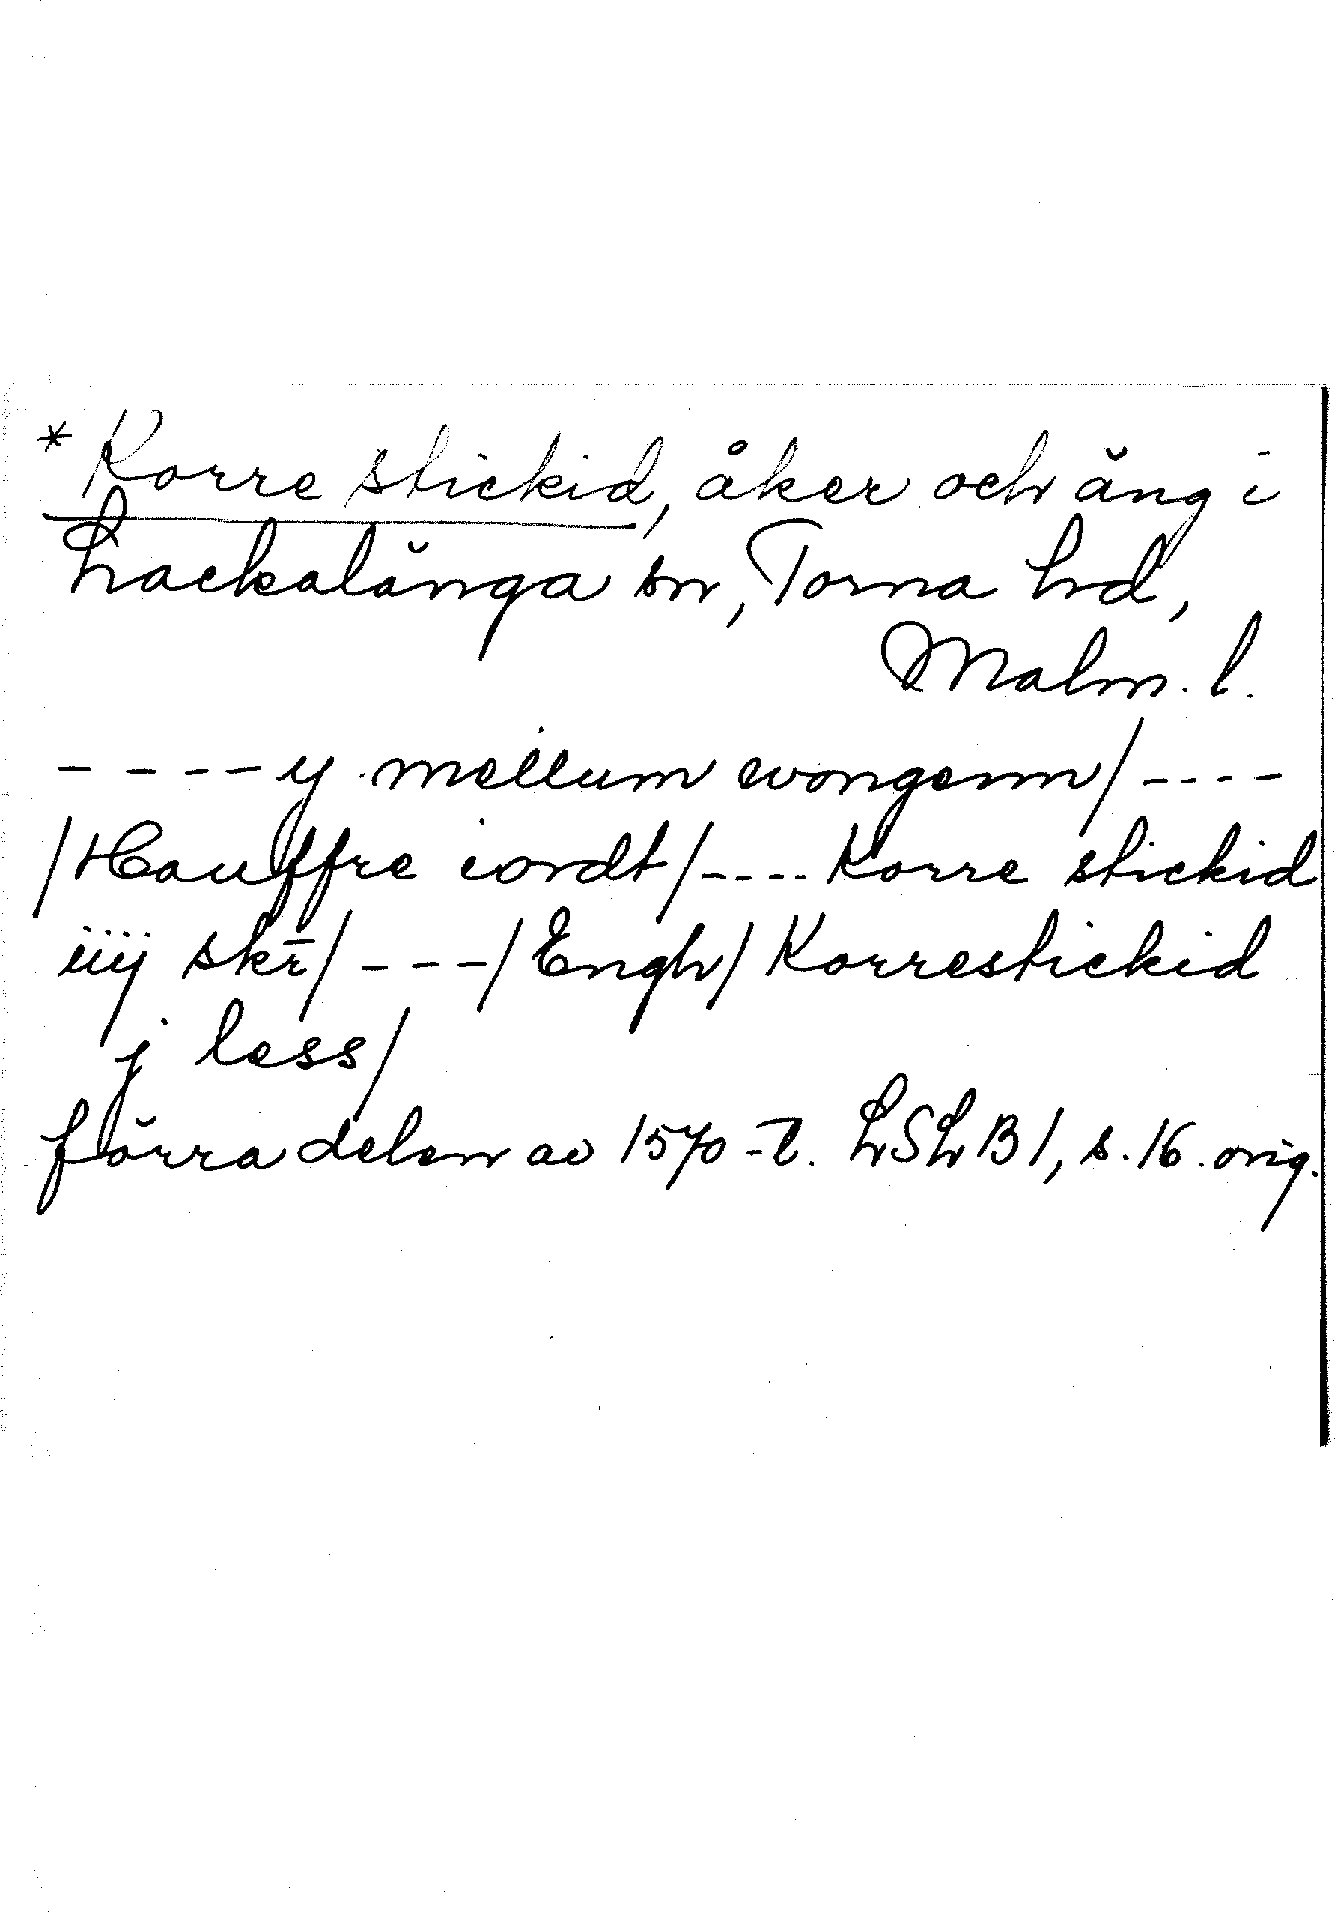 * Korre stickid, åker och äng i
Lackalänga sn, Torna hd,
Malm. l.
- - - - y mellum wongenn/ - - - -
/Hauffre iordt/ - - - - Korre stickid
iiij skr̄/ - - - / Engh/ Korrestickid
j less/
förra delen av 1570-t. LSLB1, s. 16. orig.